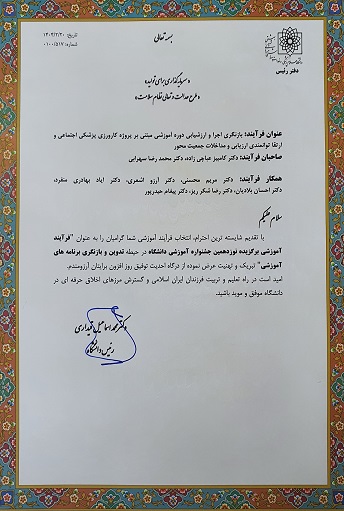 بسمه تعالی
تاریخ: ۱۴۰۴/۲/۲۰
شماره: ۰۱۰۰/۵۱۷
دفتر رئیس
« سرمایه‌گذاری برای تولید»
« طرح عدالت و تعالی نظام سلامت»
عنوان فرآیند: بازنگری اجرا و ارزشیابی دوره آموزشی مبتنی بر پروژه کارورزی پزشکی اجتماعی و
ارتقا توانمندی ارزیابی و مداخلات جمعیت محور
صاحبان فرآیند: دکتر کامبیز عباچی زاده، دکتر محمد رضا سهرابی
همکار فرآیند: دکتر مریم محسنی، دکتر آرزو اشعری، دکتر ایاد بهادری منفرد،
دکتر احسان بلادیان، دکتر رضا شکر ریز، دکتر پیغام حیدرپور
سلام علیکم
با تقدیم شایسته ترین احترام، انتخاب فرآیند آموزشی شما گرامیان را به عنوان "فرآیند
آموزشی برگزیده نوزدهمین جشنواره آموزشی دانشگاه در حیطه تدوین و بازنگری برنامه های
آموزشی" تبریک و تهنیت عرض نموده از درگاه احدیت توفیق روز افزون برایتان آرزومندم.
امید است در راه تعلیم و تربیت فرزندان ایران اسلامی و گسترش مرزهای اخلاق حرفه ای در
دانشگاه موفق و موید باشید.
دکتر محمد اسماعیل قیداری
رئیس دانشگاه